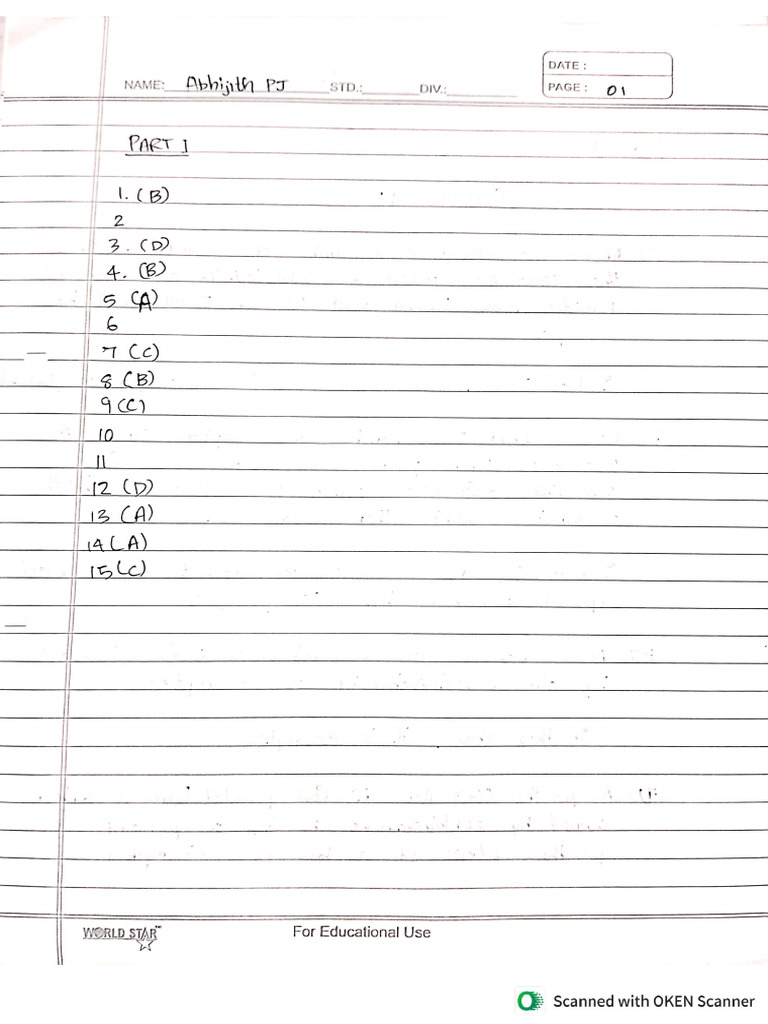 NAME: Abhijith PJ STD.: DIV.:
DATE :
PAGE : 01
PART I
1. (B)
2
3. (D)
4. (B)
5 (A)
6
7 (C)
8 (B)
9 (C)
10
11
12 (D)
13 (A)
14 (A)
15 (C)
WORLD STAR
For Educational Use
Scanned with OKEN Scanner